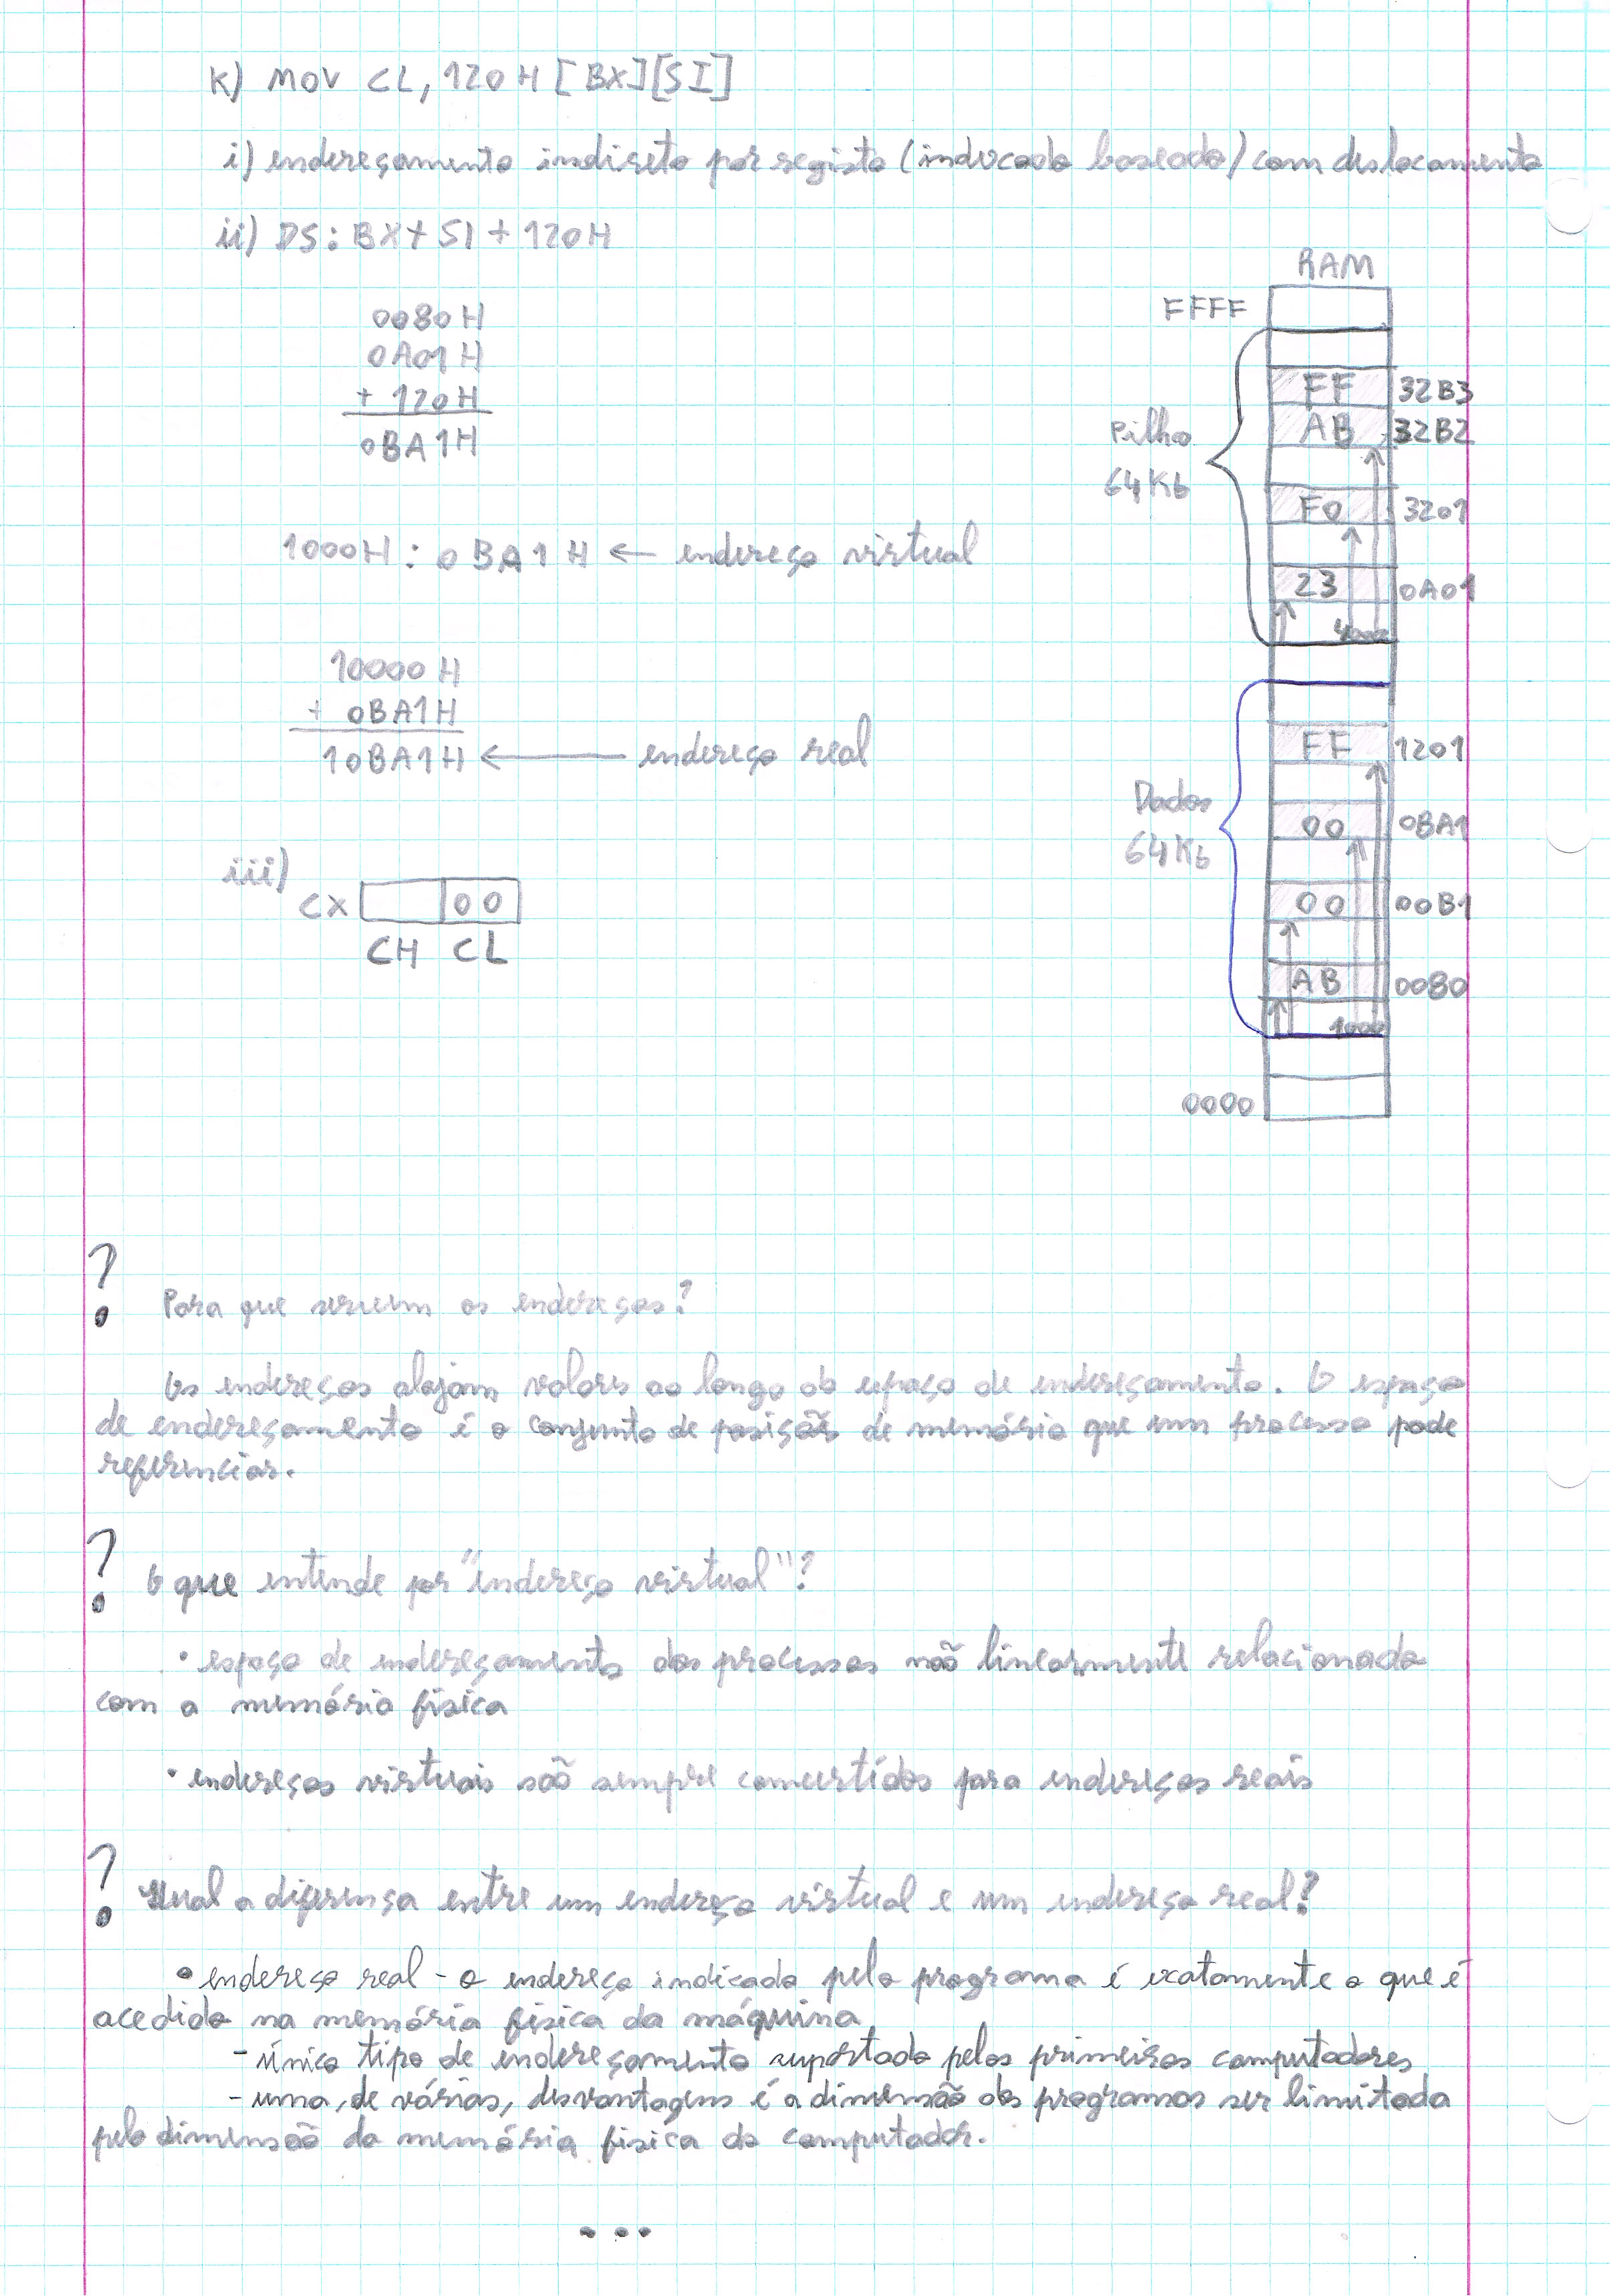 K) MOV CL, 120H [BX][SI]
i) endereçamento indireto por registo (indexado baseado) com deslocamento
ii) DS: BX + SI + 120H
0080H
0A01H
+ 120H
0BA1H
1000H : 0BA1H ← endereço virtual
10000H
+ 0BA1H
10BA1H ← endereço real
iii)
CX 00
CH CL
RAM
FFFF
FF 32B3
AB 32B2
Pilha
64Kb
F0 3201
23 0A01
4000
FF 1201
Dados
64Kb
00 0BA1
00 00B1
AB 0080
1000
0000
? Para que servem os endereços?
Os endereços alojam valores ao longo do espaço de endereçamento. O espaço
de endereçamento é o conjunto de posições de memória que um processo pode
referenciar.
? O que entende por "endereço virtual"?
• espaço de endereçamento dos processos não linearmente relacionado
com a memória física
• endereços virtuais são sempre convertidos para endereços reais
? Qual a diferença entre um endereço virtual e um endereço real?
• endereço real - o endereço indicado pelo programa é exatamente o que é
acedido na memória física da máquina
- único tipo de endereçamento suportado pelos primeiros computadores
- uma, de várias, desvantagens é a dimensão dos programas ser limitada
pela dimensão da memória física do computador.
...